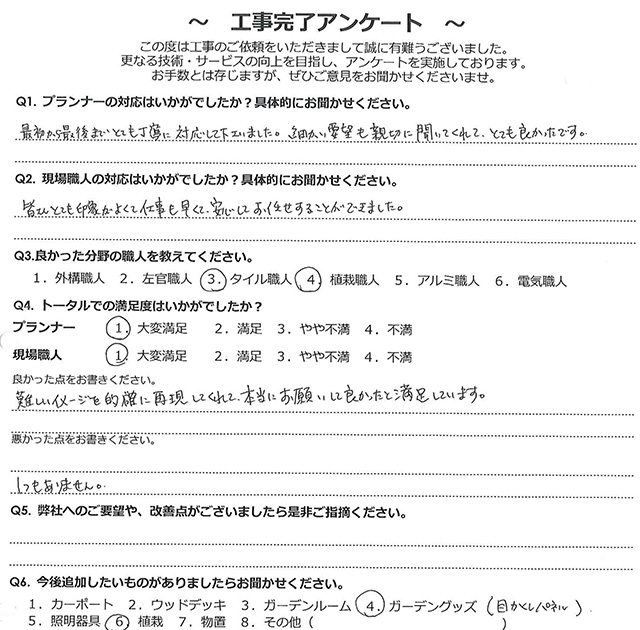 ～ 工事完了アンケート ～
この度は工事のご依頼をいただきまして誠に有難うございました。
更なる技術・サービスの向上を目指し、アンケートを実施しております。
お手数とは存じますが、ぜひご意見をお聞かせくださいませ。
Q1. プランナーの対応はいかがでしたか？具体的にお聞かせください。
最初から最後までとても丁寧に対応して下さいました。細かい要望も親切に聞いてくれて、とても良かったです。
Q2. 現場職人の対応はいかがでしたか？具体的にお聞かせください。
皆さんとても印象がよくて仕事も早くて、安心してお任せすることができました。
Q3.良かった分野の職人を教えてください。
1．外構職人 2．左官職人 3．タイル職人 4．植栽職人 5．アルミ職人 6．電気職人
Q4. トータルでの満足度はいかがでしたか？
プランナー 1．大変満足 2．満足 3．やや不満 4．不満
現場職人 1．大変満足 2．満足 3．やや不満 4．不満
良かった点をお書きください。
難しいイメージを的確に再現してくれて、本当にお願いして良かったと満足しています。
悪かった点をお書きください。
1つもありません。
Q5. 弊社へのご要望や、改善点がございましたら是非ご指摘ください。
Q6. 今後追加したいものがありましたらお聞かせください。
1．カーポート 2．ウッドデッキ 3．ガーデンルーム 4．ガーデングッズ（目かくしパネル）
5．照明器具 6．植栽 7．物置 8．その他（ ）